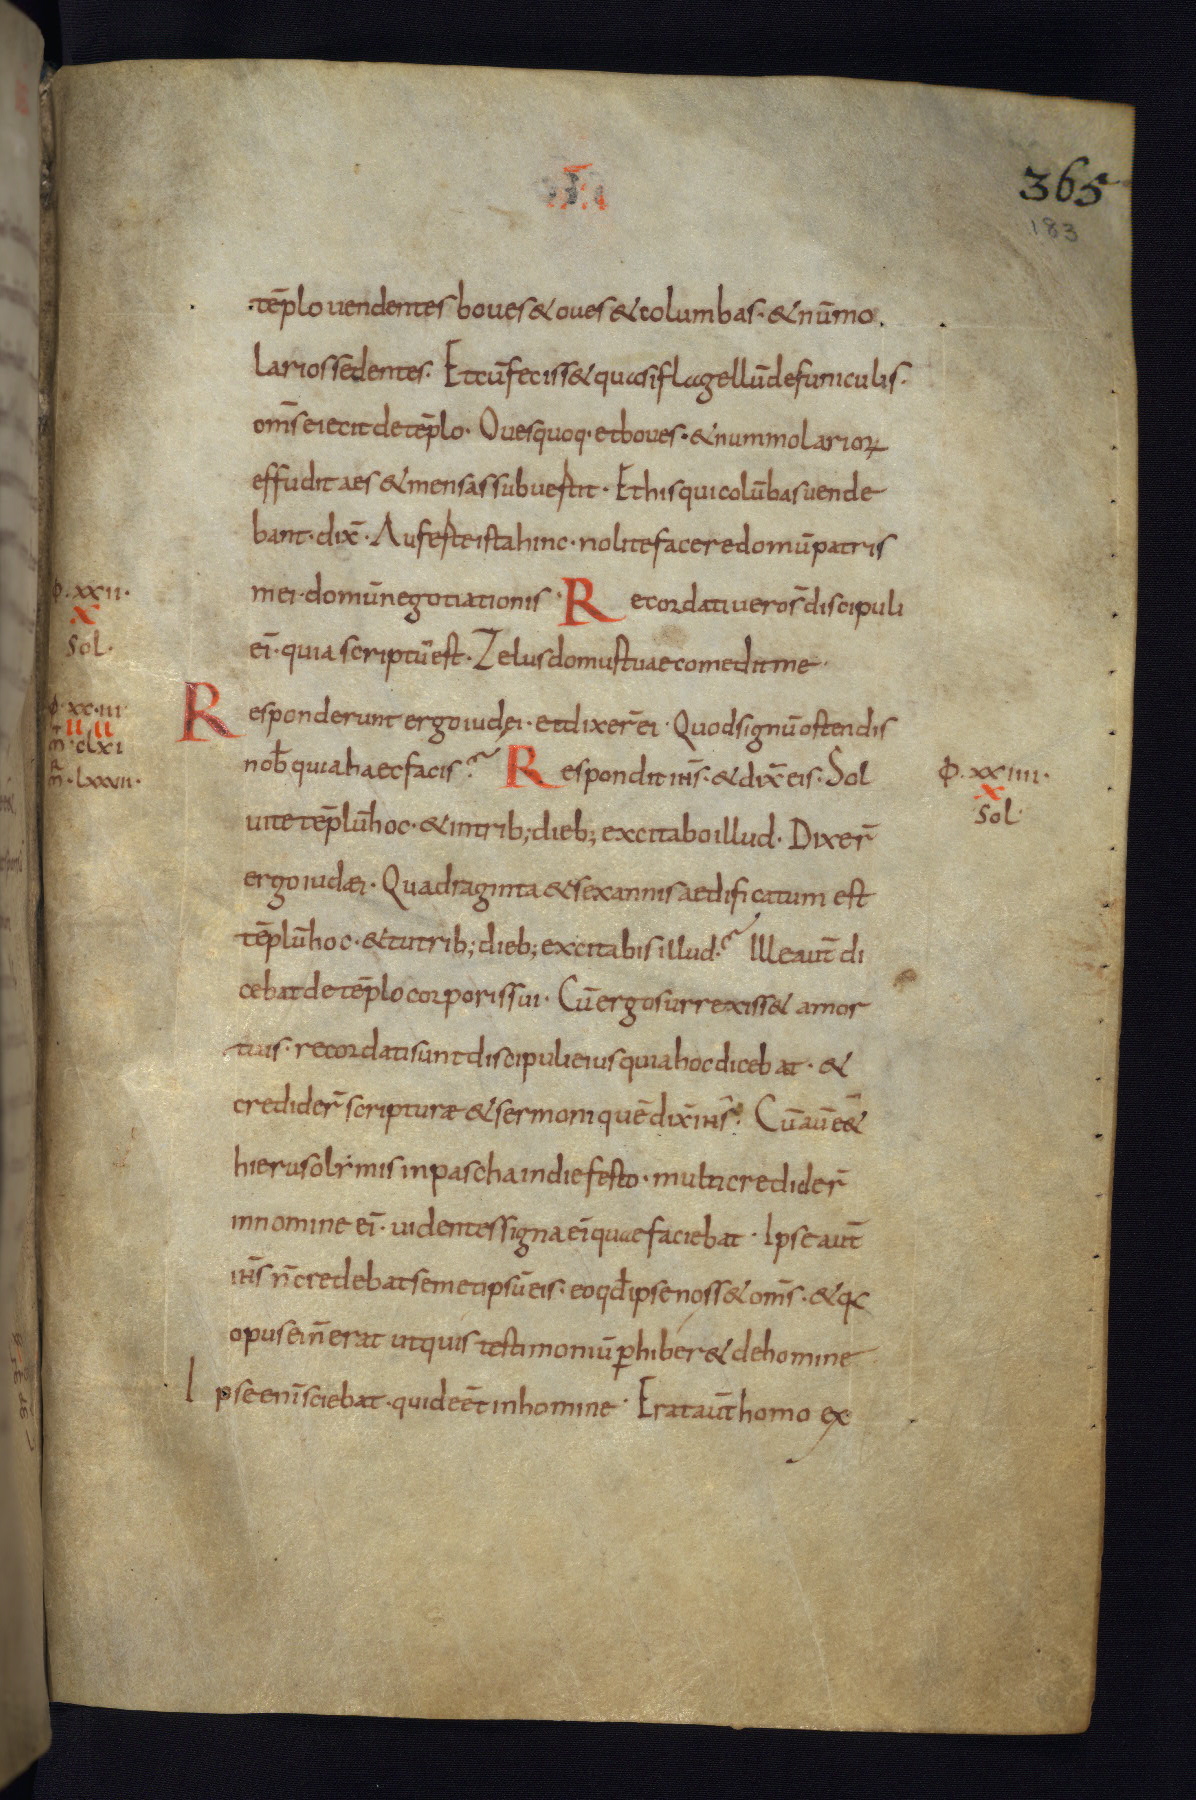 365
183
tēplo uendentes boues & oues & columbas · & nūmo
larios sedentes · Et cū feciss& quasi flagellū de funiculis ·
om̄s eiecit de tēplo · Oues quoq· et boues · & nummularioꝝ
effudit aes & mensas subuertit · Et his qui colūbas uende
bant · dix̄ · Auferte ista hinc · nolite facere domū patris
mei · domū negotiationis · Recordati uero s̄ discipuli
ei̅ · quia scriptū est · Zelus domus tuae comedit me ·
Responderunt ergo iudęi · et dixer̄ ei · Quod signū ostendis
nob̄ quia haec facis? Respondit ih̄s · & dix̄ eis · Sol
uite tēplū hoc · & in trib; dieb; excitabo illud · Dixer̄
ergo iudæi · Quadraginta & sex annis aedificatum est
tēplū hoc · & tu trib; dieb; excitabis illud? Ille aut̄ di
cebat de tēplo corporis sui · Cū ergo surrexiss& a mor
tuis · recordati sunt discipuli eius quia hoc dicebat · &
credider̄ scripturæ & sermoni quē dix̄ ih̄s · Cū aut̄ e&̄
hierusolimis in pascha in die festo · multi credider̄
in nomine ei̅ · uidentes signa ei̅ quae faciebat · Ipse aut̄
ih̄s n̄ credebat semetipsū eis · eo qd̄ ipse noss& om̄s · & q
opus ei n̄ erat ut quis testimoniū ꝑhiber& de homine
Ipse eni̅ sciebat · quid eēt in homine · Erat aut̄ homo ex
φ · xxii ·
x
Sol ·
φ · xx · iii
ii ii
m̄ · clxi
m̄ · lxxxii ·
φ · xxiiii ·
x
Sol ·